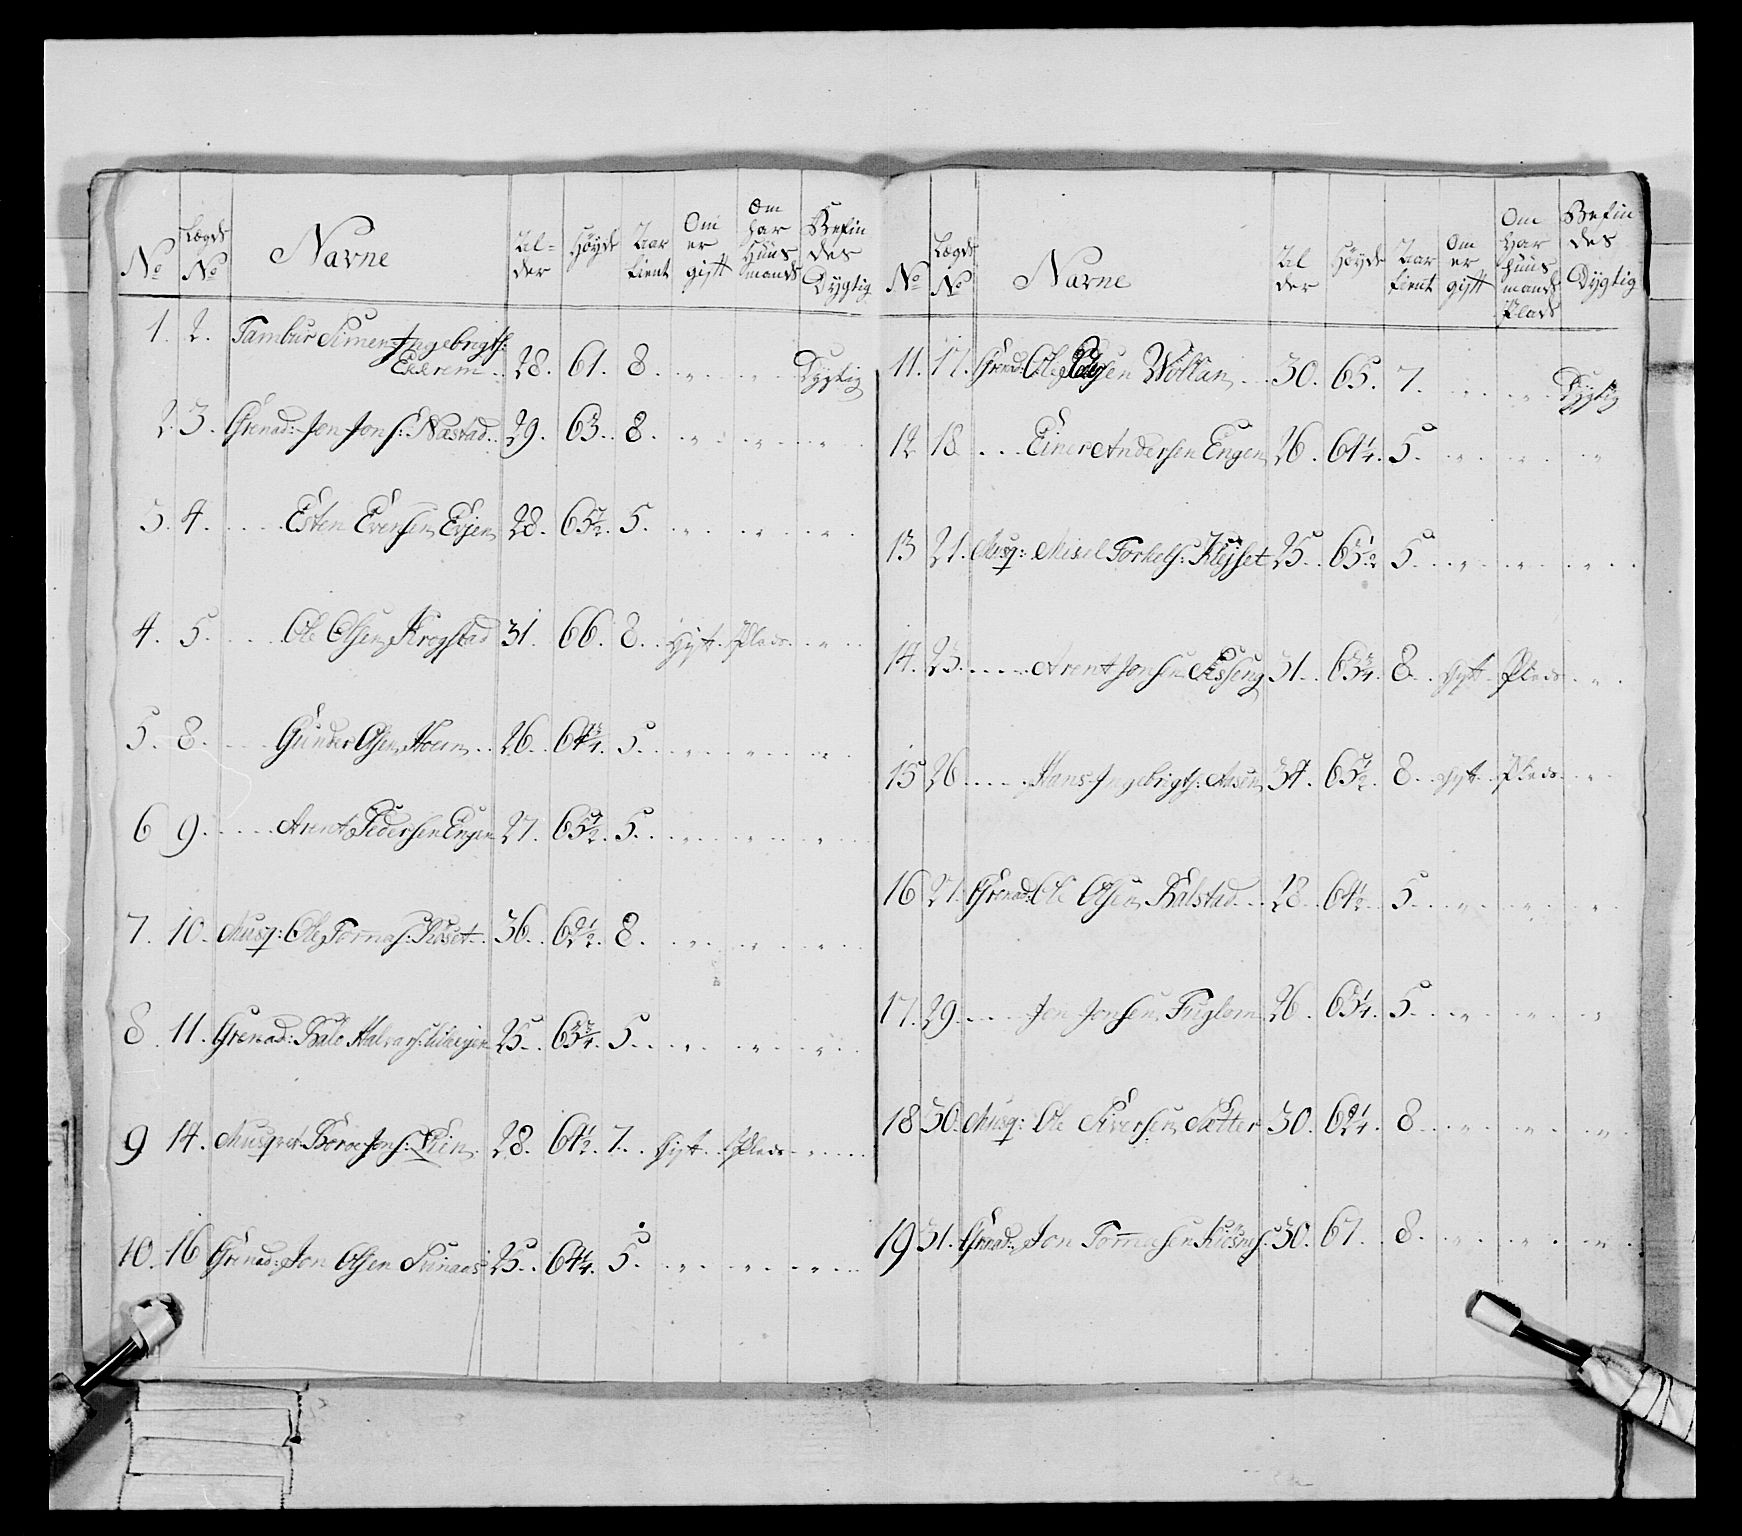 No Lægds No Navne Al=der Høyde Aar tient Om er gift Om har Huus mands Befindes Dygtig
1. 2. Tambur Simen Ingebrigts:
Eerem 28. 61. 8. " " Dygtig
2. 3. Grenad: Jon Jons: Næstad 29. 63. 8. " " "
3. 4. Esten Evensen Evjen 28. 65 1/2. 5. " " "
4. 5. Ole Olsen Krogstad 31. 66. 8. Gift Plads "
5. 8. Gunder Olsen Hoem 26. 64 3/4. 5. " " "
6 9. Arent Pedersen Engen 27. 65 1/2. 5. " " "
7. 10. Musq: Ole Tomas: Roset 36. 62 1/2. 8. " " "
8. 11. Grenad: Halvars: 25. 63 3/4. 5. " " "
9 14. Musqvet Jons: Rien 28. 64 1/2. 7. Gift Plads "
10. 16 Grenad: Jon Olsen 25. 64 1/4. 5. " " "
No Lægds No Navne Al der Høyde Aar tient Om er gift Om Har huus mands Plads Befindes Dygtig
11. 17. Grenad: Ole Olsen Wollan 30. 65. 7. " " Dygtig
12 18 Einer Andersen Engen 26. 64 1/4. 5. " " "
13 21. Musq: Misel Torkels: 25. 63 1/2 5. " " "
14. 23. Arent Jonsen 31. 63 3/4. 8. Gift Plads "
15 26 Hans Ingebrigts: Aasen 34. 65 1/2. 8. Gift Plads "
16 27. Grenad: Ole Olsen Balstad 28. 64 1/2. 5. " " "
17. 29. Jon Jonsen Fuglem 26. 63 1/4. 5. " " "
18 30. Musq: Ole Siversen Sætter 30. 62 1/4. 8. " " "
19 31. Grenad: Jon Tomesen 30. 67. 8. " " "